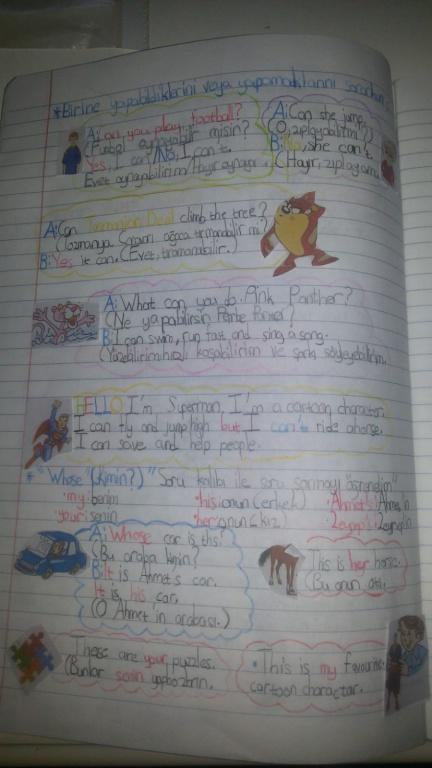 *Birine yapabildiklerini veya yapamadıklarını sorarken.
A: Can you play football?
(Futbol oynayabilir misin?
Yes, I can/No, I can't.
Evet oynayabilirim/Hayır oynaya
A: Can she jump,
(O, zıplayabilir mi?)
B: No, she can't.
(Hayır, zıplayamaz
A: Can Tasmanian Devil climb the tree?
(Tazmanya Canavarı ağaca tırmanabilir mi?)
B: Yes, it can. (Evet, tırmanabilir.)
A: What can you do Pink Panther?
(Ne yapabilirsin Pembe Panter?
B: I can swim, run fast and sing a song.
(Yüzebilirim hızlı koşabilirim ve şarkı söyleyebilirim.
HELLO I'm Superman. I'm a cartoon character.
I can fly and jump high but I can't ride a horse.
I can save and help people.
* "Whose" (kimin?)" Soru kalıbı ile soru sormayı öğrendim"
my: benim
his: onun (erkek)
Ahmet's: Ahmet'in
your: senin
her: onun (kız)
Zeynep's: Zeynep'in
A: Whose car is this?
(Bu araba kimin?
B: It is Ahmet's car.
It is his car.
(O Ahmet'in arabası.)
This is her horse.
(Bu onun atı.
These are your puzzles.
(Bunlar senin yapbozların.
This is my favourite
cartoon character.